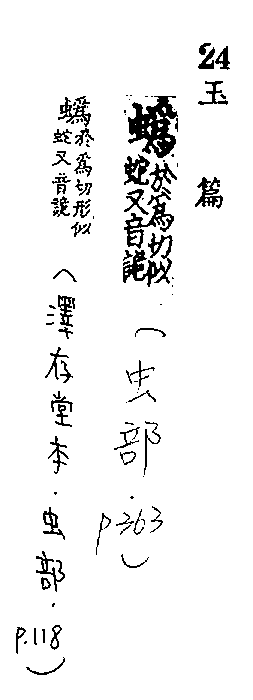 24
玉篇
蟡於為切似蛇又音詭（虫部．p363）
蟡於為切形似蛇又音詭（澤存堂本．虫部．p.118）